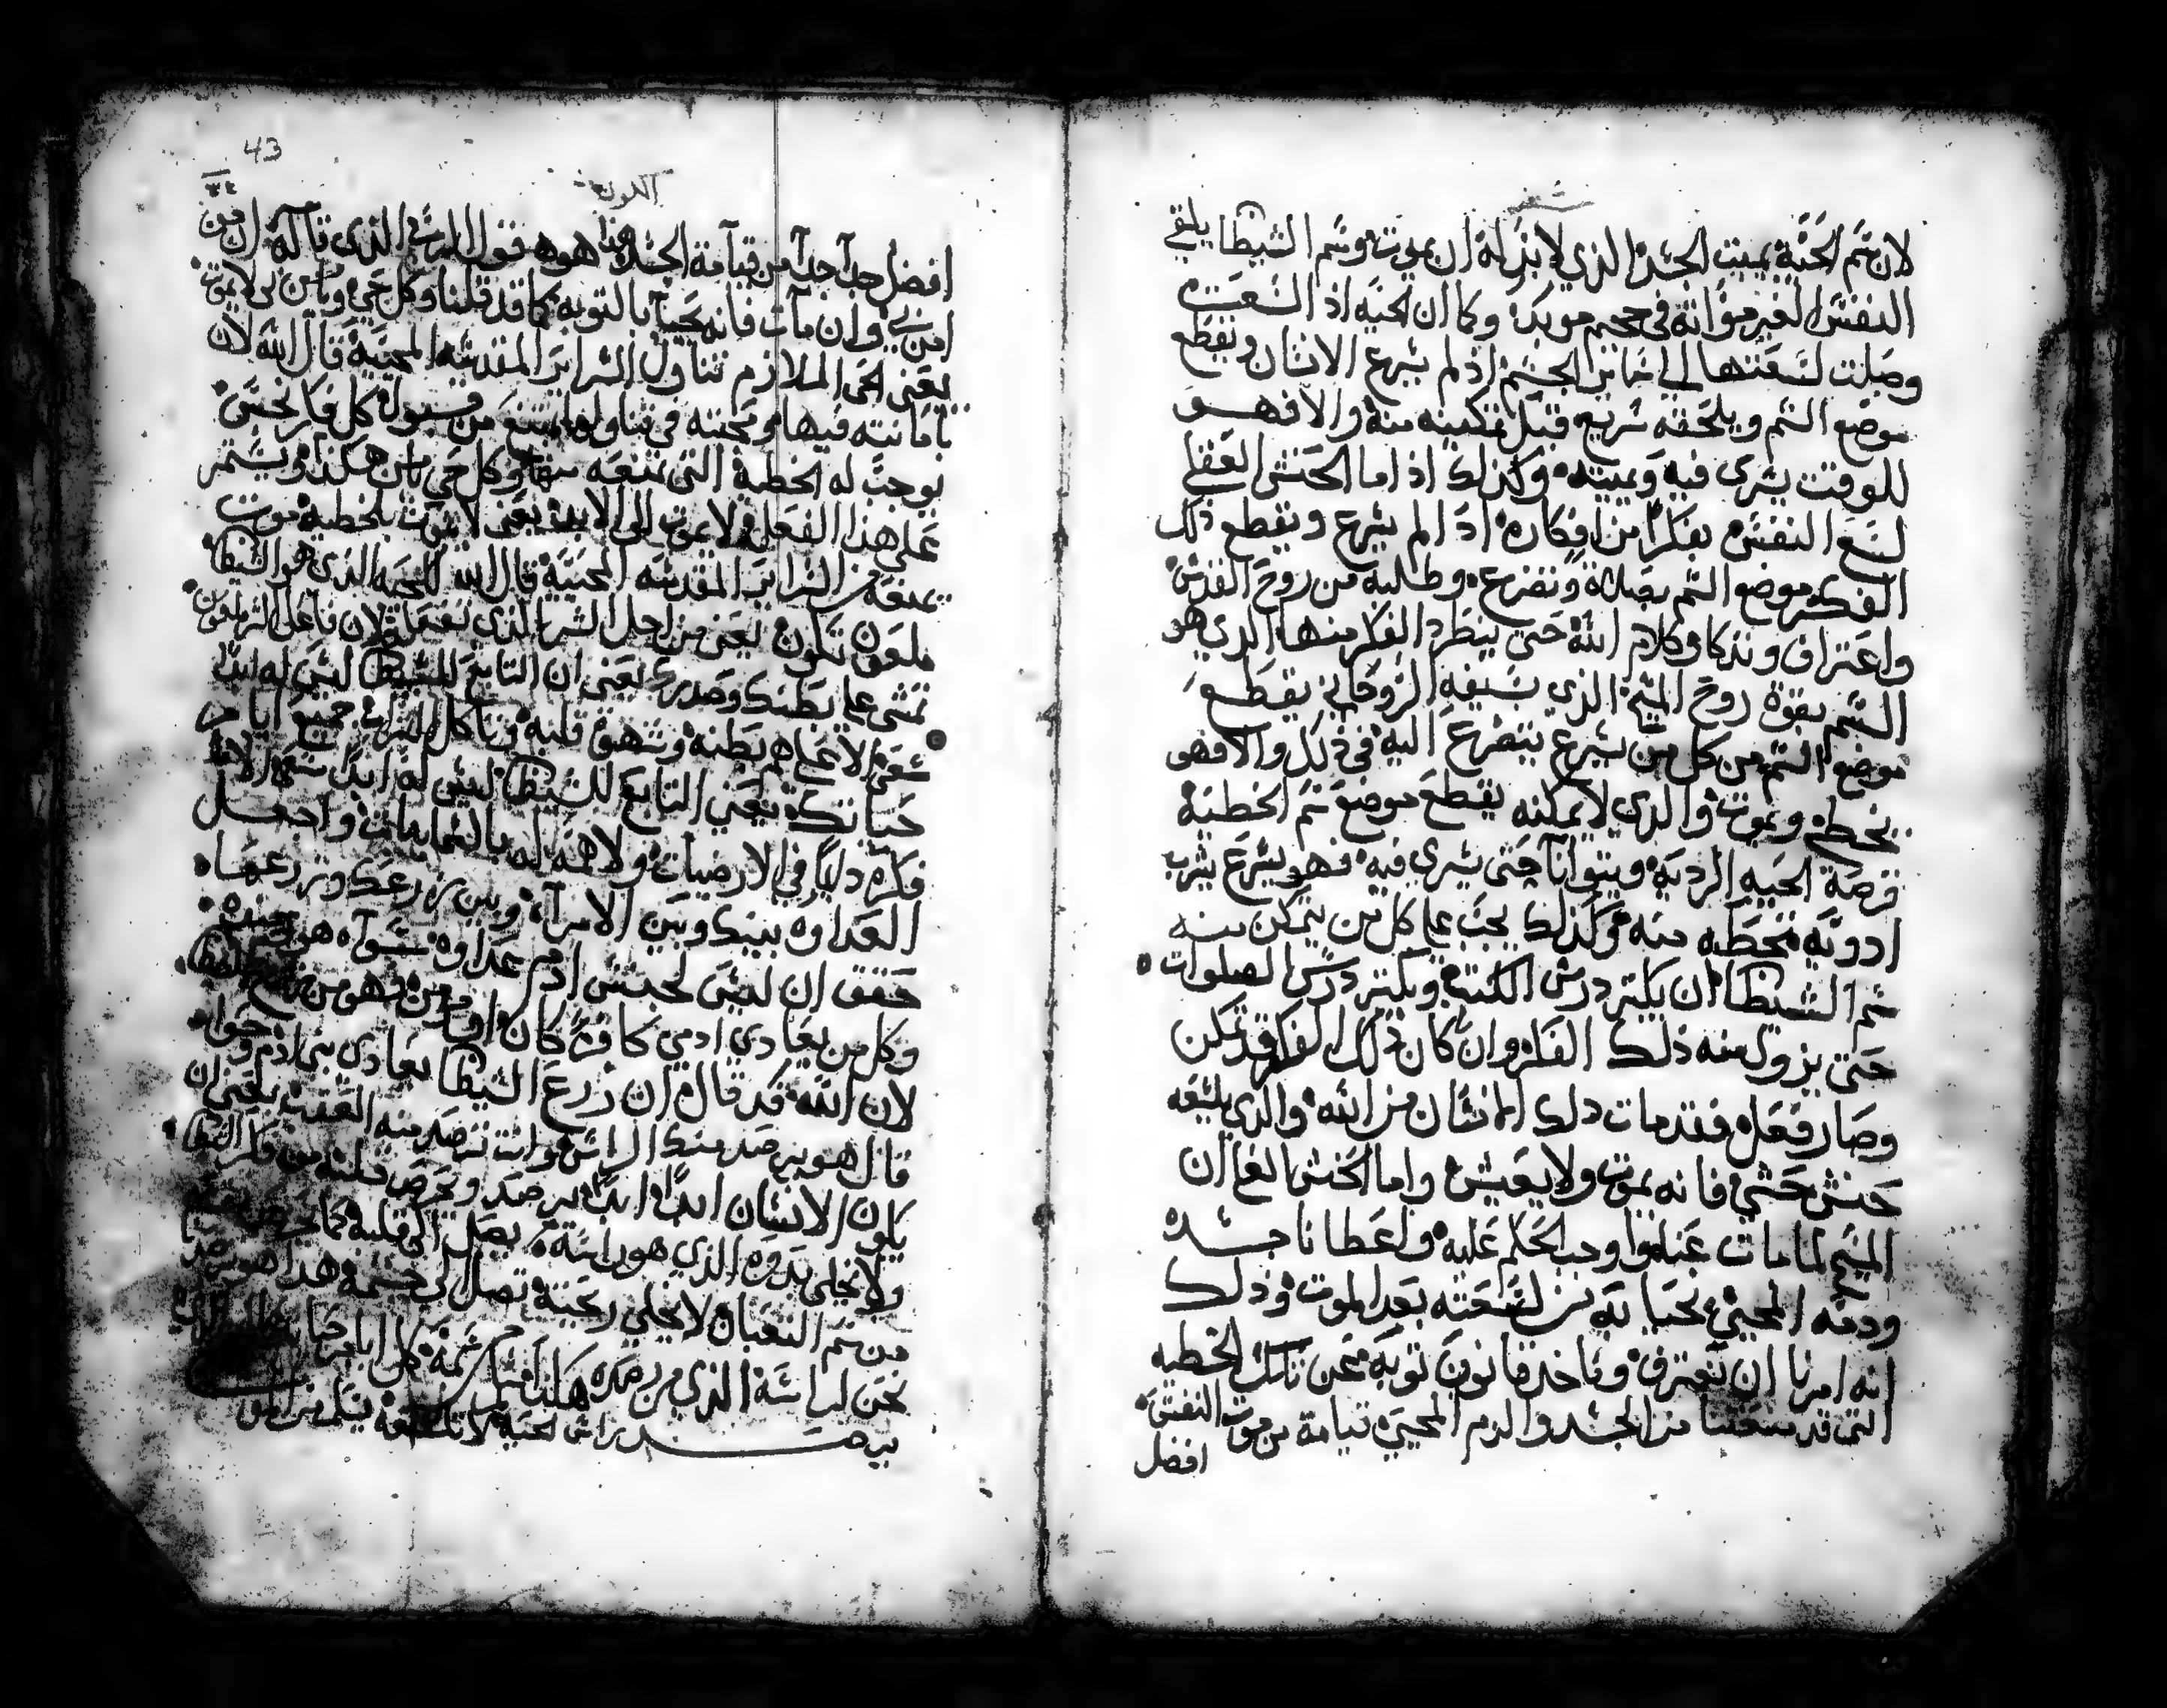 شعر
لان سم الحية يميت الجسد الذي لابد له ان يموت وسم الشيطا يلقي
النفس الغير مواته في جحيم موبده وكما ان الحيه اذ السعت
وصلت لسعتها الي سائر الجسم اذ لم يسرع الانسان ويقطع
موضع السم ويلحقه سريع قبل تمكينه منه والا فهو
للوقت يسري فيه ويميته وكذلك اذ اما الحنش العقلي
لسع النفس بفكر من افكاره اذ الم يسرع ويقطع ذلك
الفكر موضع السم بصلاة وتضرع وطلبه من روح القدس
واعتراف وتذكار وكلام الله حتي ينطرد الفكر منها الدي هو
السم بقوة روح المسيح الذي بسيفه الروحاني يقطع
موضع السم من كل من يسرع يتضرع اليه في ذلك والا فهو
يخطي ويموت والدي لا يمكنه يقطع موضع سم الخطية
قرصة الحيه الرديه ويتوانا حتي يسري فيه فهو يسرع يشرب
ادويه تحطه منه وكذلك يجب علي كل من يتمكن منه
سم الشيطا ان يكتر درس الكتب ويكتر درس الصلوات
حتي يزول منه ذلك الفكر وان كان ذلك الفكر قد تمكن
وصار فعله فقد مات دلك الانسان من الله والدي يلسعه
حنش حسي فانه يموت ولا يعيش واما الحنش العقلي ان
المسيح لما مات عنا واوجب الحكم عليه واعطانا جسده
ودمه المحيي نحيا به من لسعته بعد الموت وذلك
انه امرنا ان نعترف وناخد قانون توبه عن تلك الخطيه
التي قد منعتنا من الجسد والدم المحيي قيامة من موت النفس
افضل
43
التكوين
افضل جدا جدا من قيامة الجسد هدا هو قول الرب الذي قاله ان من
امن بي وان مات فانه يحيا بالتوبه كما قد قلنا وكل حي ويامن بي لا يموت
يعني الحي الملازم تناول السراير المقدسه المحييه قال الله لان
بامانته فيها ومحبته في تناولها يمتنع من قبول كل فكر نجس
يوجب له الخطية التي تمنعه منها وكل حي يامن هكذا ويستمر
علي هذا الفعل لا يموت الي الابد يعني لا يموت بخطية موت
تمنعه من السراير المقدسه المحييه قال الله للحيه الذي هو الشيطا
ملعون تكون يعني من اجل الشر الذي تفعله لان فاعل الشر ملعون
تمشي علي بطنك وصدرك يعني ان التابع للشيطا ليس له ابدا
سعي الا بما هم بطنه وشهوة قلبه وتاكل التراب جميع ايام
حياتك يعني التابع للشيطا ليس له ابدا سعي الا
فكره دايما في الارضيات ولا همه له بالسماييات واجعل
العداوه بينك وبين الامراه وبين زرعك وزرعها
حقق ان ليس لجنس ادم عداوه سواه هو وجنده
وكل من يعادي ادمي كافر كان او مومن فهو من زرع الشيطا
لان الله قد قال ان زرع الشيطا يعادي بني ادم وحوا
قال هو يرصد منك الراس وانت ترصد منه العقب يعني ان
يكون الانسان ابدا ابدا يرصد ويحرص قلبه من فكر الشيطا
ولا يخلي بدوه الذي هو راسه يصل الي قلبه كما يحرص
من سم التعبان لا يخلي راس حيته تصل الي جسمه هدا هو رصد
نحن لراسه الذي نرصده هكذا
يرصد راس الحيه لا تلسعه